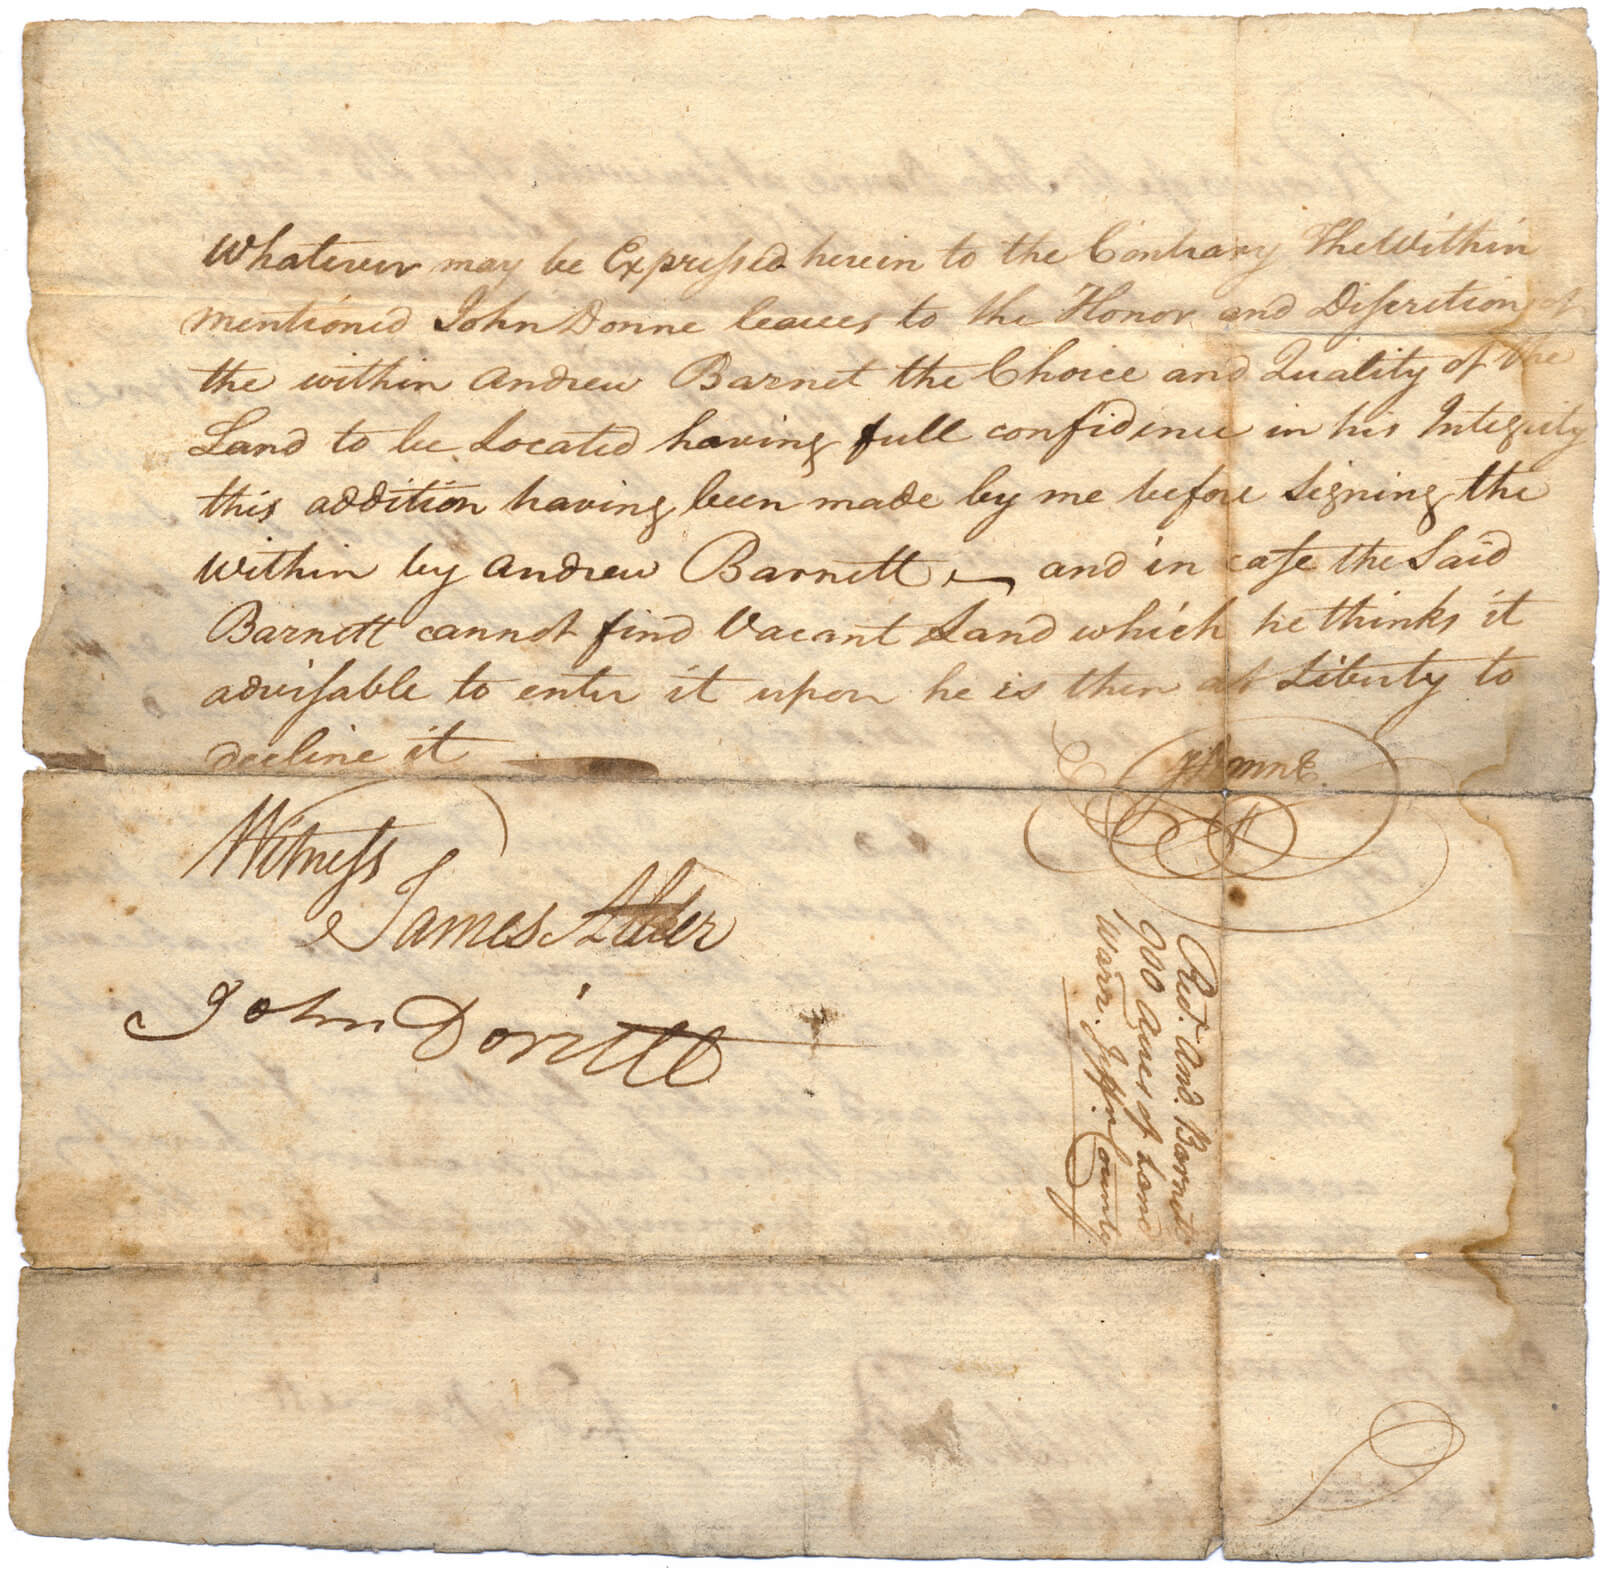 Whatever may be Expreſsed herein to the Contrary The Within
mentioned John Donne leaves to the Honor and Diſcretion of
the within Andrew Barnet the Choice and Quality of the
Land to be Located having full confidence in his Integrity
this addition having been made by me before Signing the
within by Andrew Barnett and in caſe the Said
Barnett cannot find Vacant Land which he thinks it
adviſable to enter it upon he is then at Liberty to
decline it
Witneſs
James Alder
John
Rect. And. Barnett
900 Acres of Land
Warr. Jeffn. County